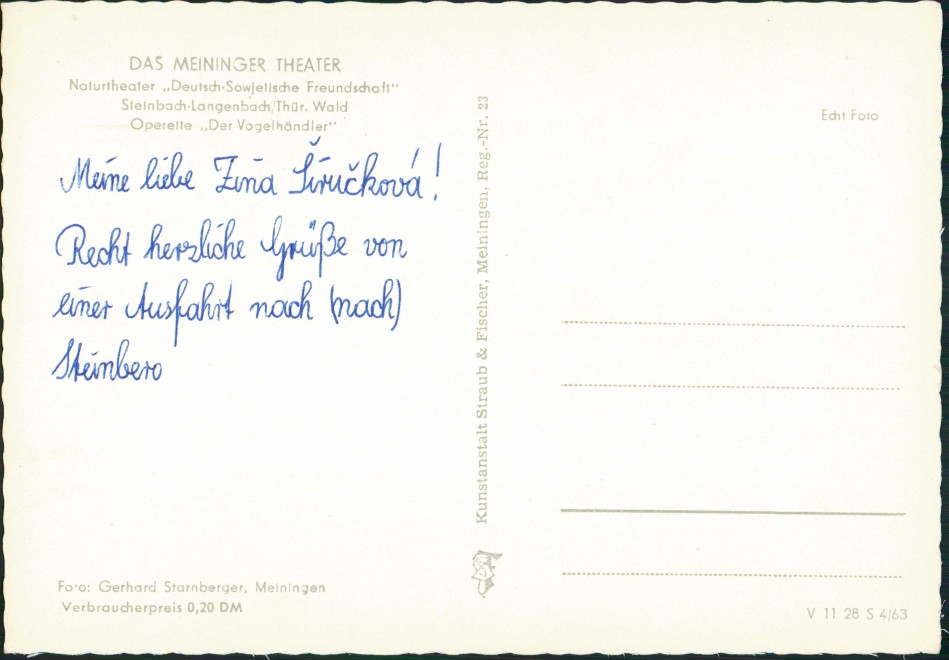 DAS MEININGER THEATER
Naturtheater „Deutsch-Sowjetische Freundschaft"
Steinbach-Langenbach/Thür. Wald
Operette „Der Vogelhändler"
Meine liebe Zina Širučková!
Recht herzliche Grüße von
einer Ausfahrt nach (nach)
Steinbero
Foto: Gerhard Starnberger, Meiningen
Verbraucherpreis 0,20 DM
Kunstanstalt Straub & Fischer, Meiningen, Reg.-Nr. 23
Echt Foto
V 11 28 S 4/63